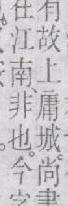 有故上庸城尚書
在江南非也今